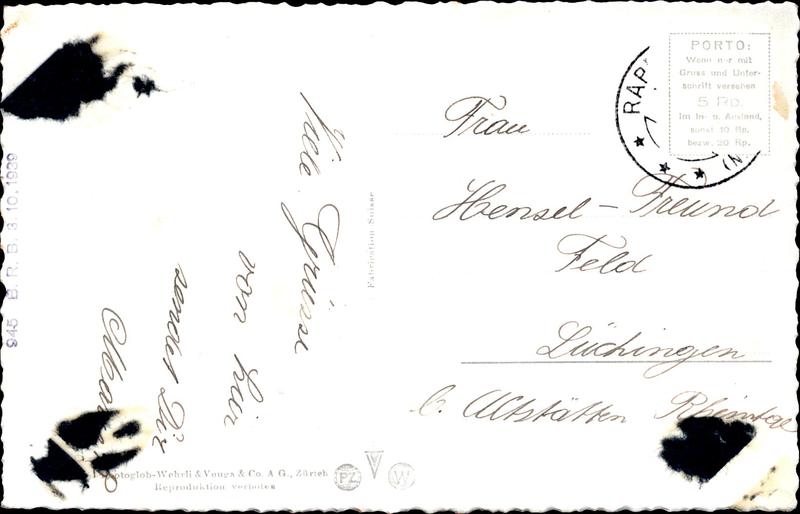 Viele Grüsse
von hier
sendet Dir
Fabrication Suisse
945 B. R. B. 3.10.1939
Photoglob-Wehrli & Vouga & Co. A G., Zürich
Reproduktion verboten
PZ
W
RAP
PORTO:
Wenn nur mit
Gruss und Unter-
schrift versehen
5 Rp.
Im In- u. Ausland,
sonst 10 Rp.
bezw. 20 Rp.
Frau
Hensel-Freund
Feld
Lüchingen
b. Altstätten Rheintal